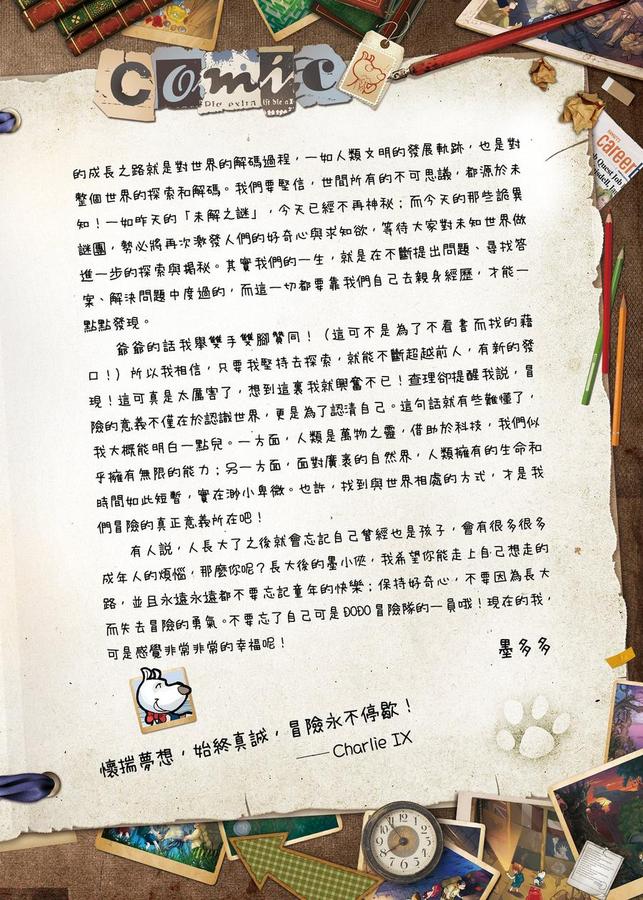 Comic
career
的成長之路就是對世界的解碼過程，一如人類文明的發展軌跡，也是對
整個世界的探索和解碼。我們要堅信，世間所有的不可思議，都源於未
知！一如昨天的「未解之謎」，今天已經不再神秘；而今天的那些詭異
謎團，勢必將再次激發人們的好奇心與求知欲，等待大家對未知世界做
進一步的探索與揭秘。其實我們的一生，就是在不斷提出問題、尋找答
案、解決問題中度過的，而這一切都要靠我們自己去親身經歷，才能一
點點發現。
爺爺的話我舉雙手雙腳贊同！（這可不是為了不看書而找的藉
口！）所以我相信，只要我堅持去探索，就能不斷超越前人，有新的發
現！這可真是太厲害了，想到這裏我就興奮不已！查理卻提醒我說，冒
險的意義不僅在於認識世界，更是為了認清自己。這句話就有些難懂了，
我大概能明白一點兒。一方面，人類是萬物之靈，借助於科技，我們似
乎擁有無限的能力；另一方面，面對廣袤的自然界，人類擁有的生命和
時間如此短暫，實在渺小卑微。也許，找到與世界相處的方式，才是我
們冒險的真正意義所在吧！
有人說，人長大了之後就會忘記自己曾經也是孩子，會有很多很多
成年人的煩惱，那麼你呢？長大後的墨小俠，我希望你能走上自己想走的
路，並且永遠永遠都不要忘記童年的快樂；保持好奇心，不要因為長大
而失去冒險的勇氣。不要忘了自己可是DODO冒險隊的一員哦！現在的我，
可是感覺非常非常的幸福呢！
墨多多
懷揣夢想，始終真誠，冒險永不停歇！
——Charlie IX